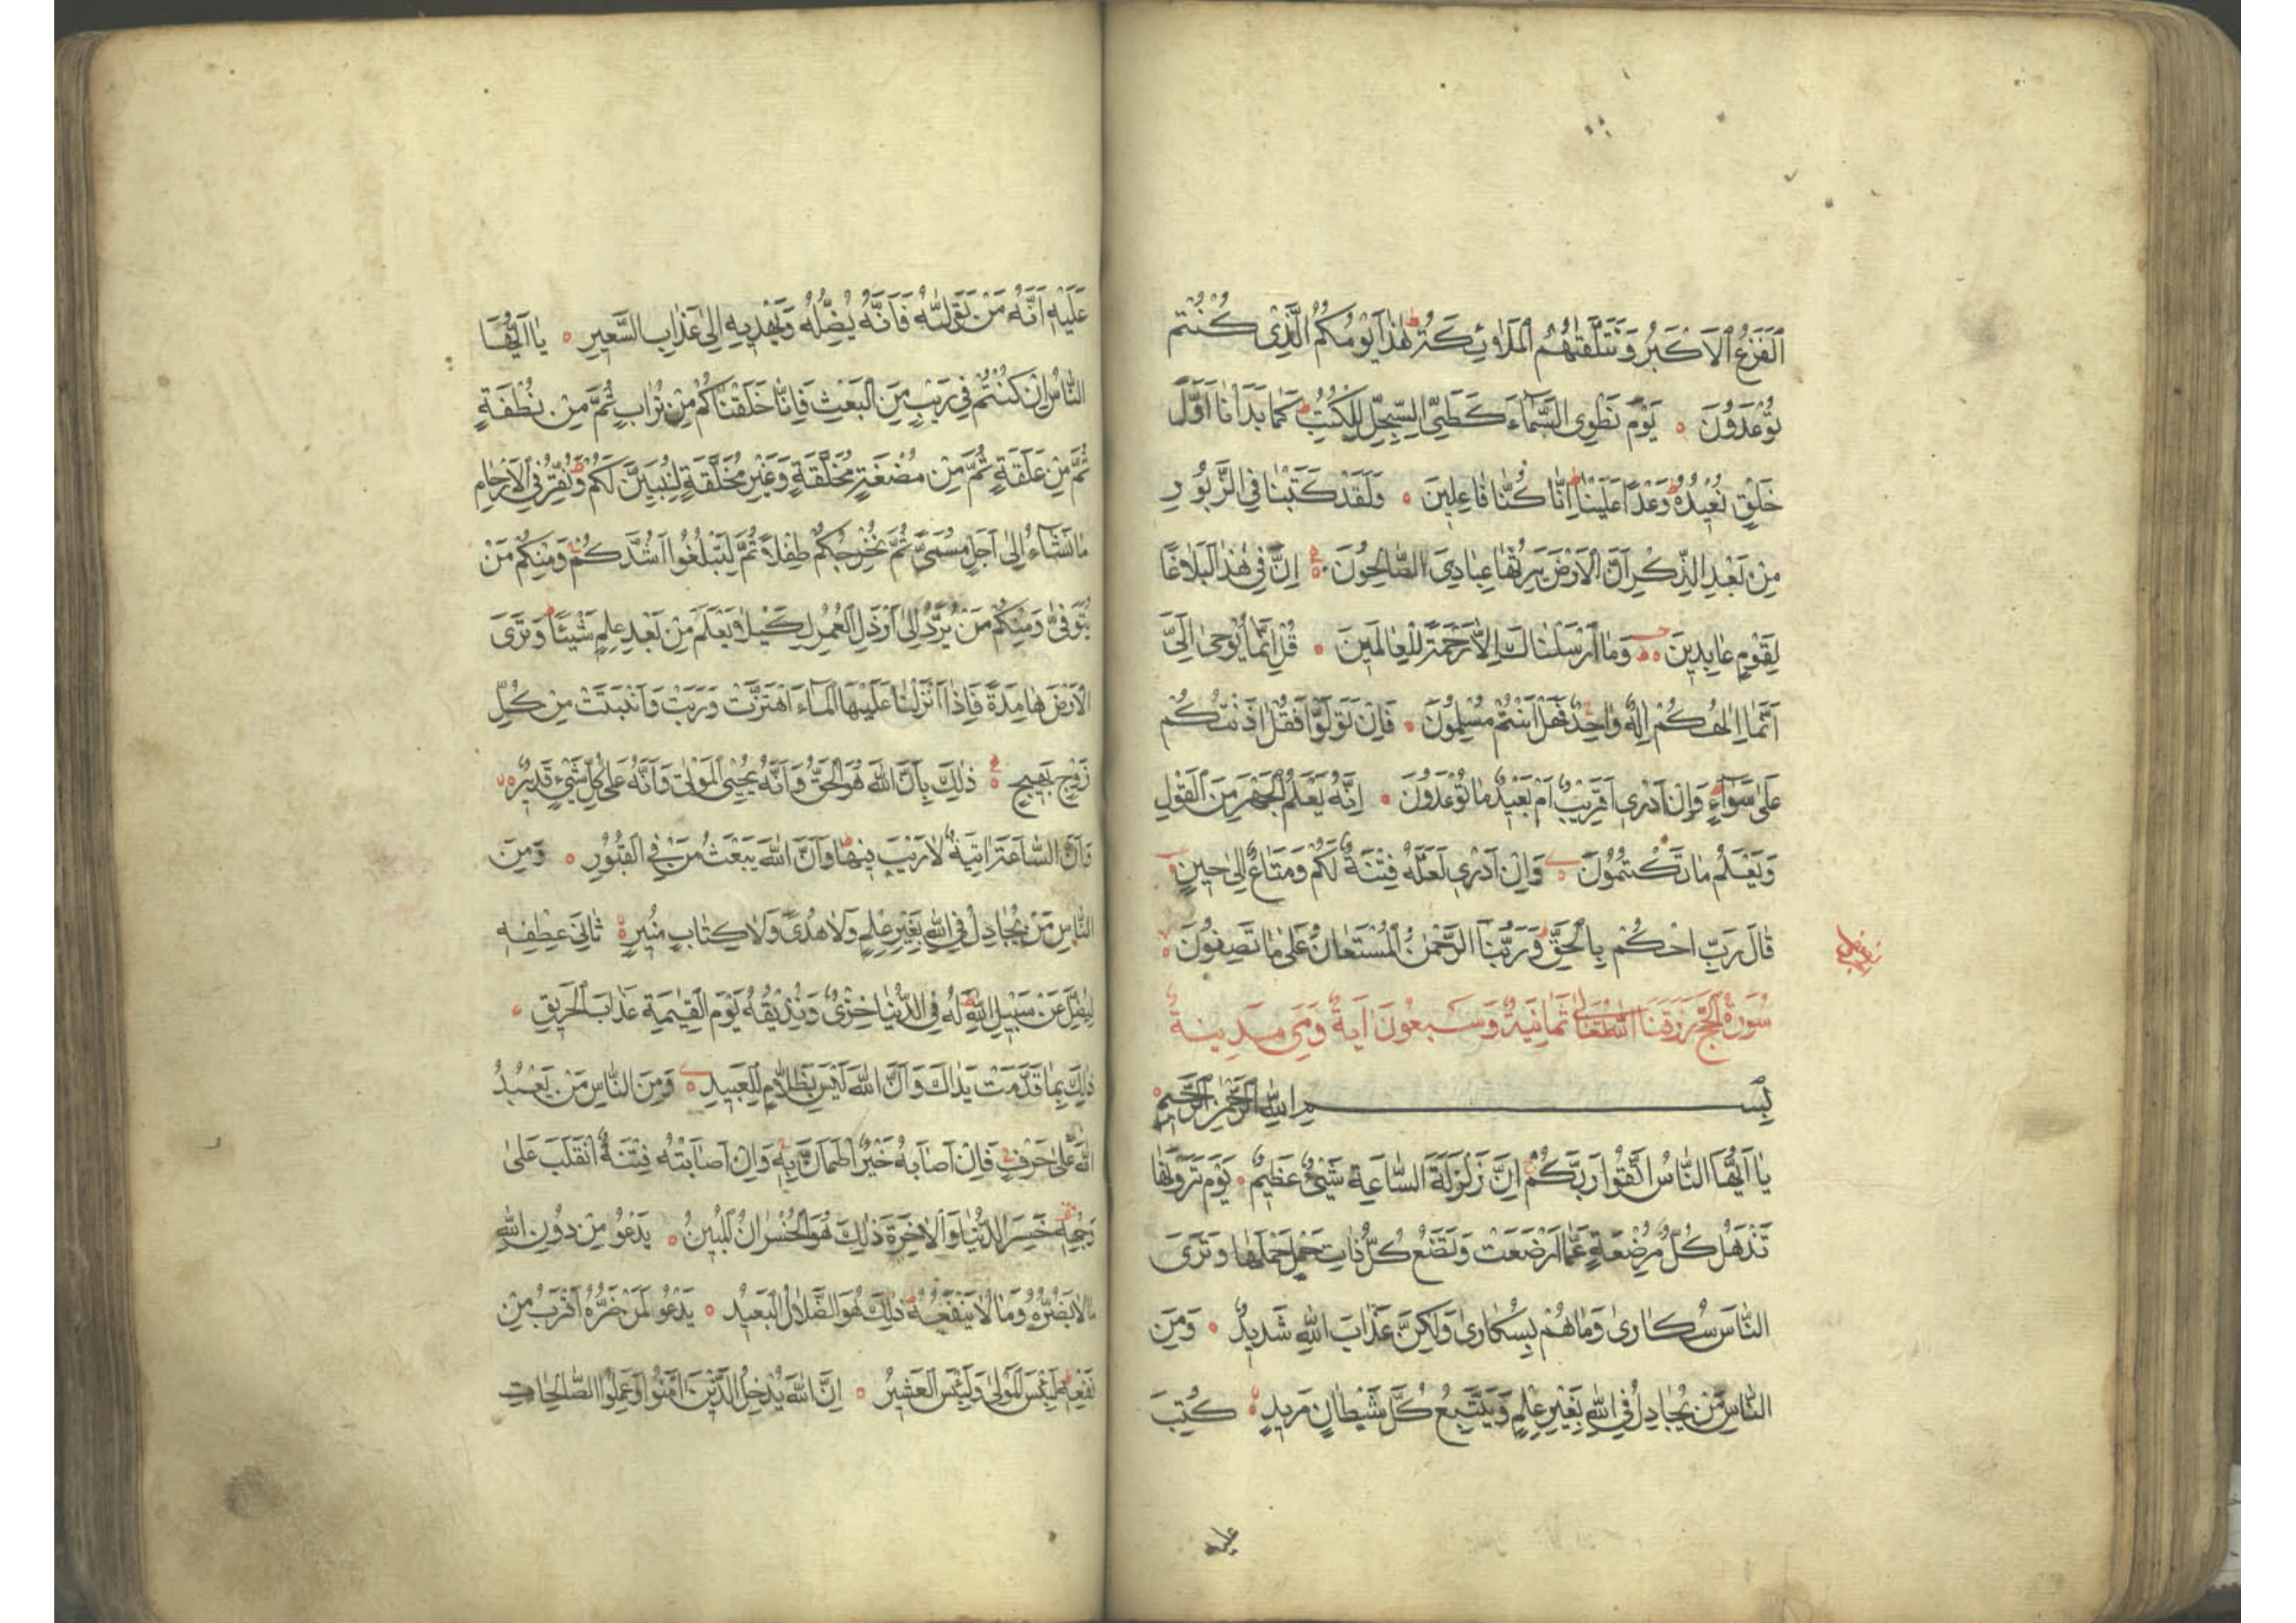 اَلْفَزَعُ الْاَكْبَرُ وَتَتَلَقّٰيهُمُ الْمَلَاۤئِكَةُ هٰذَا يَوْمُكُمُ الَّذِى كُنْتُمْ
تُوعَدُونَ يَوْمَ نَطْوِى السَّمَاۤءَ كَطَىِّ السِّجِلِّ لِلْكُتُبِ كَمَا بَدَاْنَا اَوَّلَ
خَلْقٍ نُعِيدُهُ وَعْدًا عَلَيْنَا اِنَّا كُنَّا فَاعِلِينَ وَلَقَدْ كَتَبْنَا فِى الزَّبُورِ
مِنْ بَعْدِ الذِّكْرِ اَنَّ الْاَرْضَ يَرِثُهَا عِبَادِىَ الصَّالِحُونَ اِنَّ فِى هٰذَا لَبَلَاغًا
لِقَوْمٍ عَابِدِينَ وَمَا اَرْسَلْنَاكَ اِلَّا رَحْمَةً لِلْعَالَمِينَ قُلْ اِنَّمَا يُوحٰى اِلَىَّ
اَنَّمَا اِلٰهُكُمْ اِلٰهٌ وَاحِدٌ فَهَلْ اَنْتُمْ مُسْلِمُونَ فَاِنْ تَوَلَّوْا فَقُلْ اٰذَنْتُكُمْ
عَلٰى سَوَاۤءٍ وَاِنْ اَدْرِى اَقَرِيبٌ اَمْ بَعِيدٌ مَا تُوعَدُونَ اِنَّهُ يَعْلَمُ الْجَهْرَ مِنَ الْقَوْلِ
وَيَعْلَمُ مَا تَكْتُمُونَ وَاِنْ اَدْرِى لَعَلَّهُ فِتْنَةٌ لَكُمْ وَمَتَاعٌ اِلٰى حِينٍ
قَالَ رَبِّ احْكُمْ بِالْحَقِّ وَرَبُّنَا الرَّحْمٰنُ الْمُسْتَعَانُ عَلٰى مَا تَصِفُونَ
سُورَةُ الْحَجِّ رَزَقَنَا اللّٰهُ تَعَالٰى ثَمَانِيَةٌ وَسَبْعُونَ اٰيَةً وَهِىَ مَدِينَةٌ
بِسْمِ اللّٰهِ الرَّحْمٰنِ الرَّحِيمِ
يَا اَيُّهَا النَّاسُ اتَّقُوا رَبَّكُمْ اِنَّ زَلْزَلَةَ السَّاعَةِ شَىْءٌ عَظِيمٌ يَوْمَ تَرَوْنَهَا
تَذْهَلُ كُلُّ مُرْضِعَةٍ عَمَّا اَرْضَعَتْ وَتَضَعُ كُلُّ ذَاتِ حَمْلٍ حَمْلَهَا وَتَرَى
النَّاسَ سُكَارٰى وَمَا هُمْ بِسُكَارٰى وَلٰكِنَّ عَذَابَ اللّٰهِ شَدِيدٌ وَمِنَ
النَّاسِ مَنْ يُجَادِلُ فِى اللّٰهِ بِغَيْرِ عِلْمٍ وَيَتَّبِعُ كُلَّ شَيْطَانٍ مَرِيدٍ كُتِبَ
عليه
عَلَيْهِ اَنَّهُ مَنْ تَوَلَّاهُ فَاَنَّهُ يُضِلُّهُ وَيَهْدِيهِ اِلٰى عَذَابِ السَّعِيرِ يَا اَيُّهَا
النَّاسُ اِنْ كُنْتُمْ فِى رَيْبٍ مِنَ الْبَعْثِ فَاِنَّا خَلَقْنَاكُمْ مِنْ تُرَابٍ ثُمَّ مِنْ نُطْفَةٍ
ثُمَّ مِنْ عَلَقَةٍ ثُمَّ مِنْ مُضْغَةٍ مُخَلَّقَةٍ وَغَيْرِ مُخَلَّقَةٍ لِنُبَيِّنَ لَكُمْ وَنُقِرُّ فِى الْاَرْحَامِ
مَا نَشَاۤءُ اِلٰى اَجَلٍ مُسَمًّى ثُمَّ نُخْرِجُكُمْ طِفْلًا ثُمَّ لِتَبْلُغُوا اَشُدَّكُمْ وَمِنْكُمْ مَنْ
يُتَوَفّٰى وَمِنْكُمْ مَنْ يُرَدُّ اِلٰى اَرْذَلِ الْعُمُرِ لِكَيْلَا يَعْلَمَ مِنْ بَعْدِ عِلْمٍ شَيْئًا وَتَرَى
الْاَرْضَ هَامِدَةً فَاِذَا اَنْزَلْنَا عَلَيْهَا الْمَاۤءَ اهْتَزَّتْ وَرَبَتْ وَاَنْبَتَتْ مِنْ كُلِّ
زَوْجٍ بَهِيجٍ ذٰلِكَ بِاَنَّ اللّٰهَ هُوَ الْحَقُّ وَاَنَّهُ يُحْيِى الْمَوْتٰى وَاَنَّهُ عَلٰى كُلِّ شَىْءٍ قَدِيرٌ
وَاَنَّ السَّاعَةَ اٰتِيَةٌ لَا رَيْبَ فِيهَا وَاَنَّ اللّٰهَ يَبْعَثُ مَنْ فِى الْقُبُورِ وَمِنَ
النَّاسِ مَنْ يُجَادِلُ فِى اللّٰهِ بِغَيْرِ عِلْمٍ وَلَا هُدًى وَلَا كِتَابٍ مُنِيرٍ ثَانِىَ عِطْفِهِ
لِيُضِلَّ عَنْ سَبِيلِ اللّٰهِ لَهُ فِى الدُّنْيَا خِزْىٌ وَنُذِيقُهُ يَوْمَ الْقِيٰمَةِ عَذَابَ الْحَرِيقِ
ذٰلِكَ بِمَا قَدَّمَتْ يَدَاكَ وَاَنَّ اللّٰهَ لَيْسَ بِظَلَّامٍ لِلْعَبِيدِ وَمِنَ النَّاسِ مَنْ يَعْبُدُ
اللّٰهَ عَلٰى حَرْفٍ فَاِنْ اَصَابَهُ خَيْرٌ اطْمَاَنَّ بِهِ وَاِنْ اَصَابَتْهُ فِتْنَةٌ انْقَلَبَ عَلٰى
وَجْهِهِ خَسِرَ الدُّنْيَا وَالْاٰخِرَةَ ذٰلِكَ هُوَ الْخُسْرَانُ الْمُبِينُ يَدْعُو مِنْ دُونِ اللّٰهِ
مَا لَا يَضُرُّهُ وَمَا لَا يَنْفَعُهُ ذٰلِكَ هُوَ الضَّلَالُ الْبَعِيدُ يَدْعُو لَمَنْ ضَرُّهُ اَقْرَبُ مِنْ
نَفْعِهِ لَبِئْسَ الْمَوْلٰى وَلَبِئْسَ الْعَشِيرُ اِنَّ اللّٰهَ يُدْخِلُ الَّذِينَ اٰمَنُوا وَعَمِلُوا الصَّالِحَاتِ